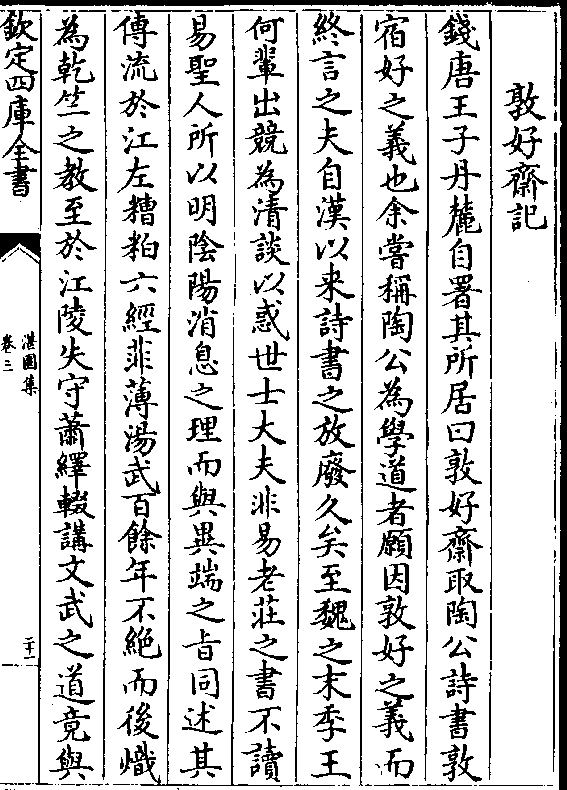 敦好齋記
錢唐王子丹麓自署其所居曰敦好齋取陶公詩書敦
宿好之義也余嘗稱陶公為學道者願因敦好之義而
終言之夫自漢以來詩書之放廢久矣至魏之末季王
何輩出競為清談以惑世士大夫非易老莊之書不讀
易聖人所以明陰陽消息之理而與異端之旨同述其
傳流於江左糟粕六經菲薄湯武百餘年不絕而後熾
為乾竺之教至於江陵失守蕭繹輟講文武之道竟與
欽定四庫全書
湛園集
卷三
二十二